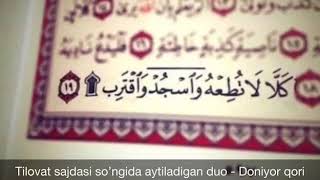 نَاصِيَةٍ كَٰذِبَةٍ خَاطِئَةٍ ١٦ فَلْيَدْعُ نَادِيَهُۥ
١٨ كَلَّا لَا تُطِعْهُ وَٱسْجُدْ وَٱقْتَرِب ۩ ١٩
Tilovat sajdasi so’ngida aytiladigan duo - Doniyor qori